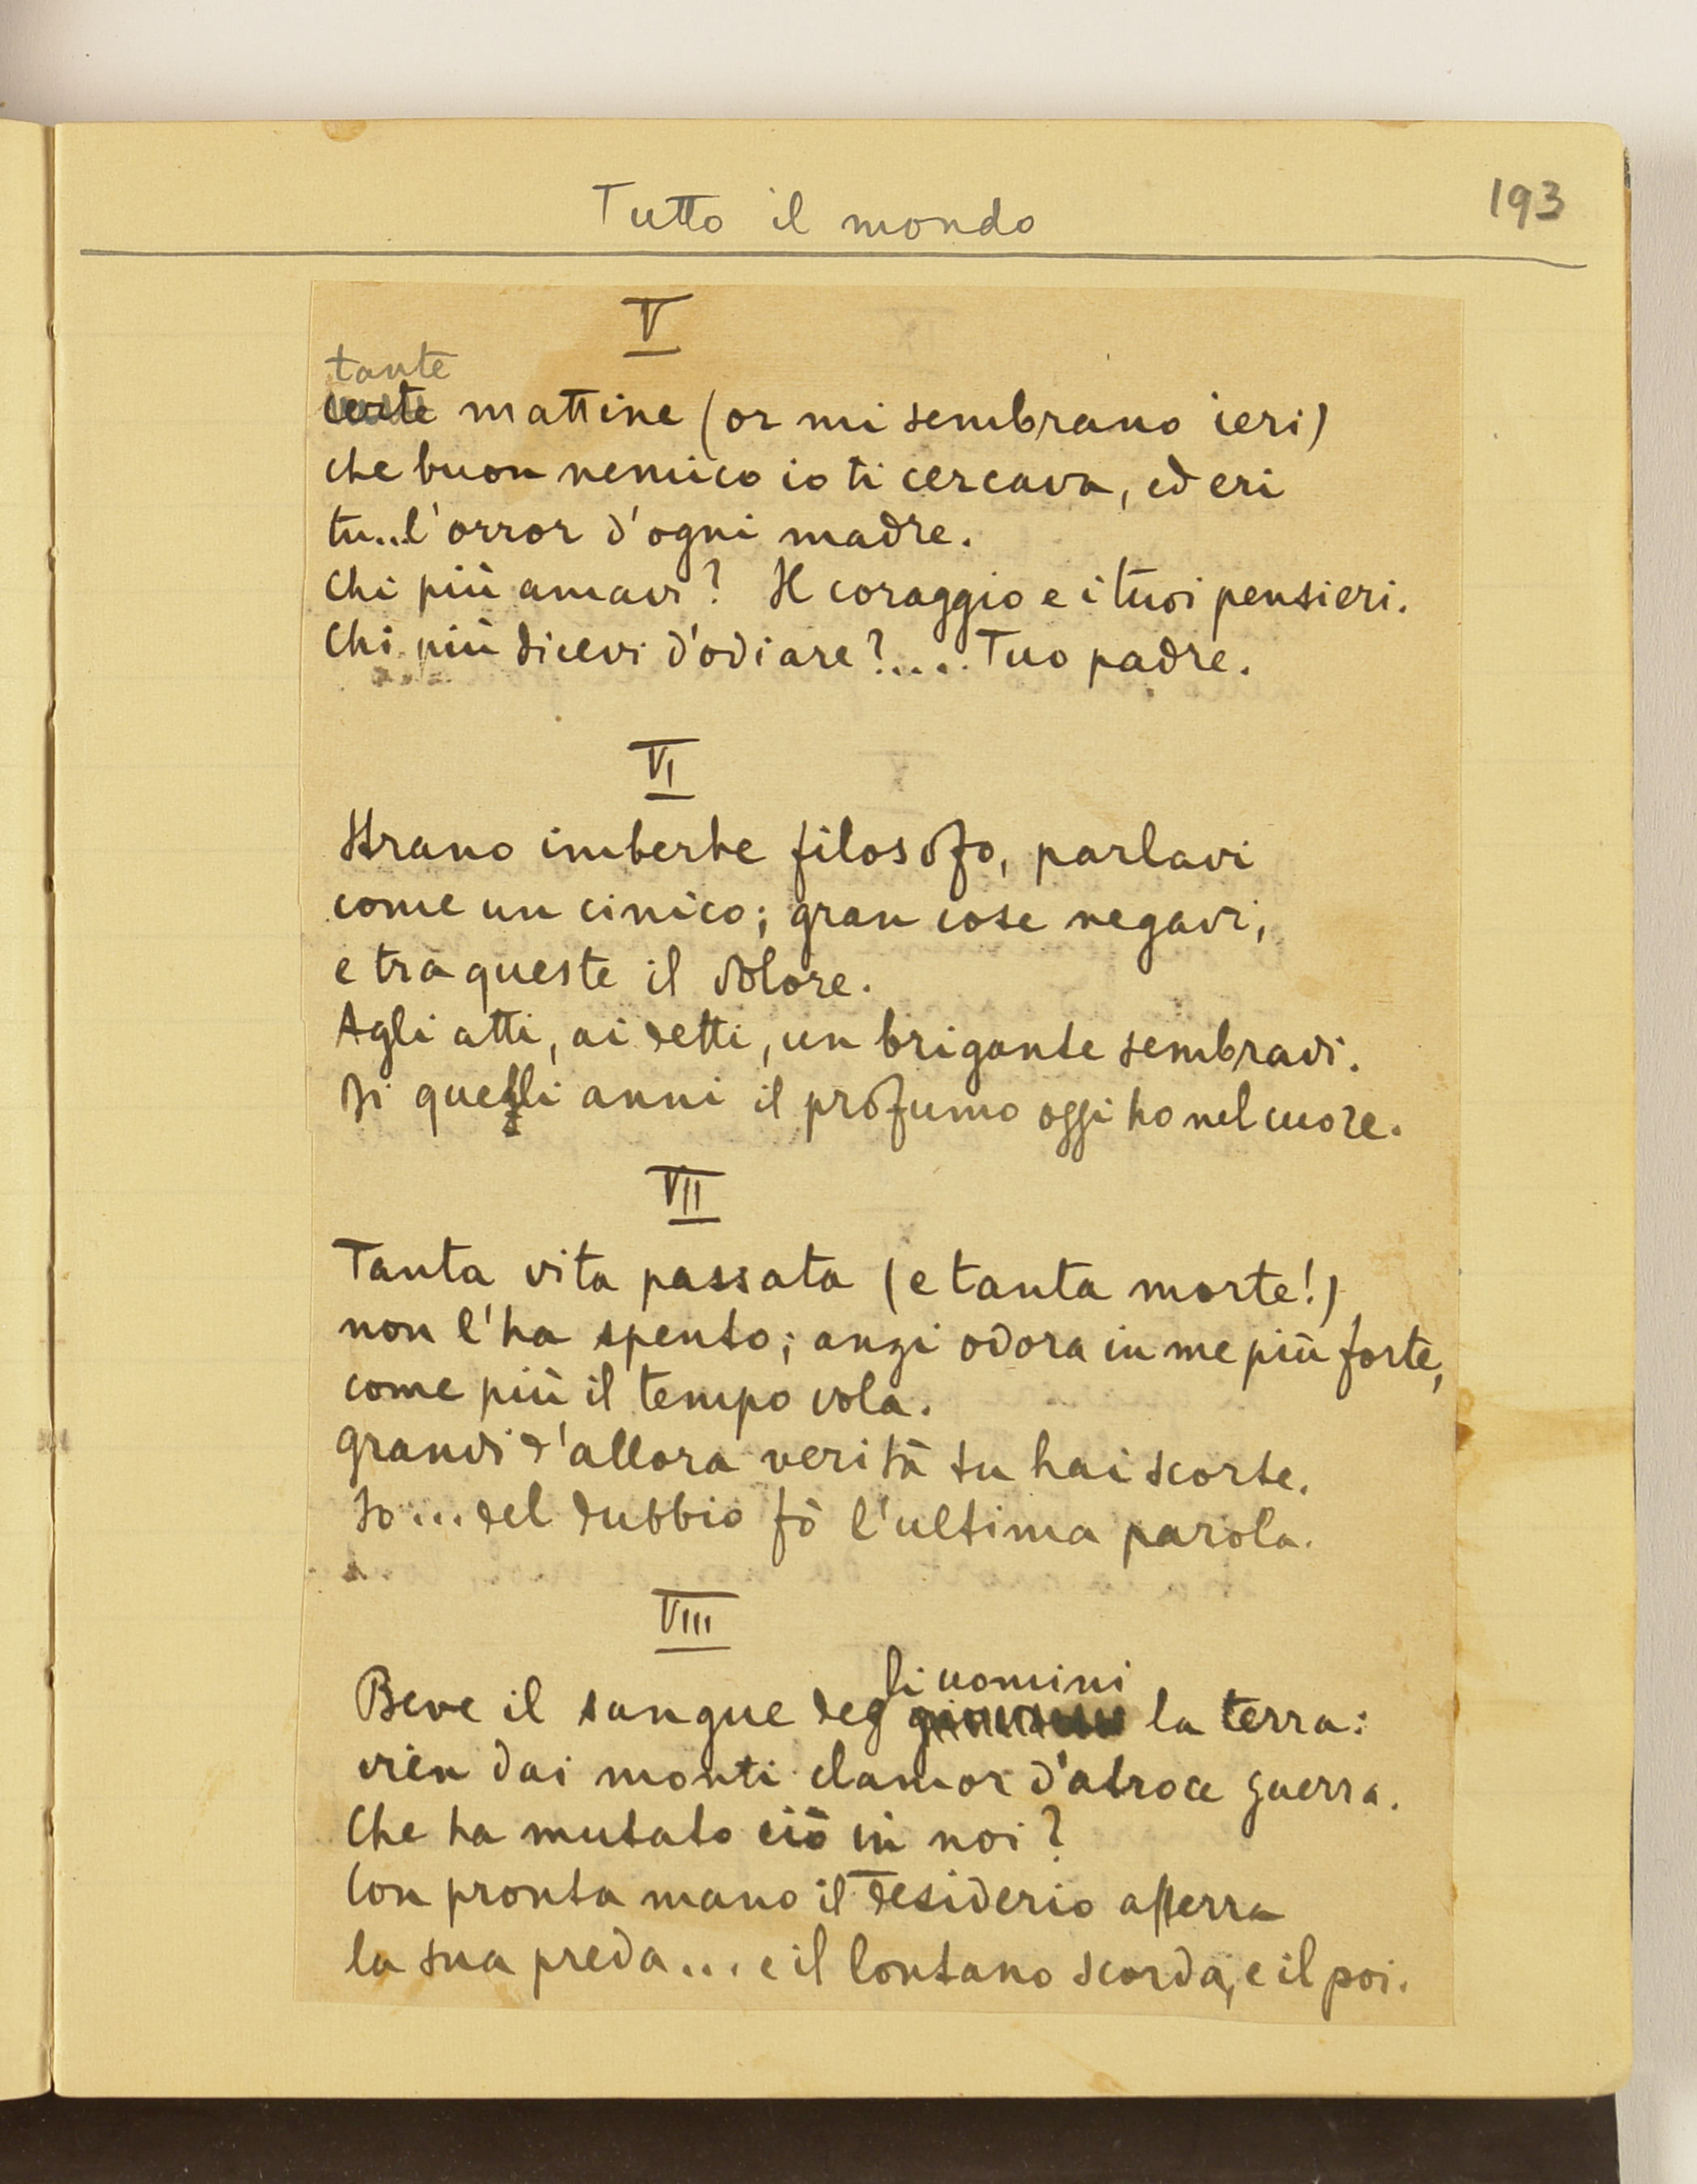 Tutto il mondo
193
V
tante
certe mattine (or mi sembrano ieri)
che buon nemico io ti cercava, ed eri
tu...l'orror d'ogni madre.
Chi più amavi? Il coraggio e i tuoi pensieri.
Chi più dicevi d'odiare?.... Tuo padre.
VI
Strano imberbe filosofo, parlavi
come un cinico; gran cose negavi,
e tra queste il dolore.
Agli atti, ai detti, un brigante sembravi.
Di quegli anni il profumo oggi ho nel cuore.
VII
Tanta vita passata (e tanta morte!)
non l'ha spento; anzi odora in me più forte,
come più il tempo vola.
Grandi d'allora verità tu hai scorte.
Io...del dubbio fò l'ultima parola.
VIII
li uomini
Beve il sangue deg la terra:
vien dai monti clamor d'atroce guerra.
Che ha mutato ciò in noi?
Con pronta mano il desiderio afferra
la sua preda... e il lontano scorda, e il poi.